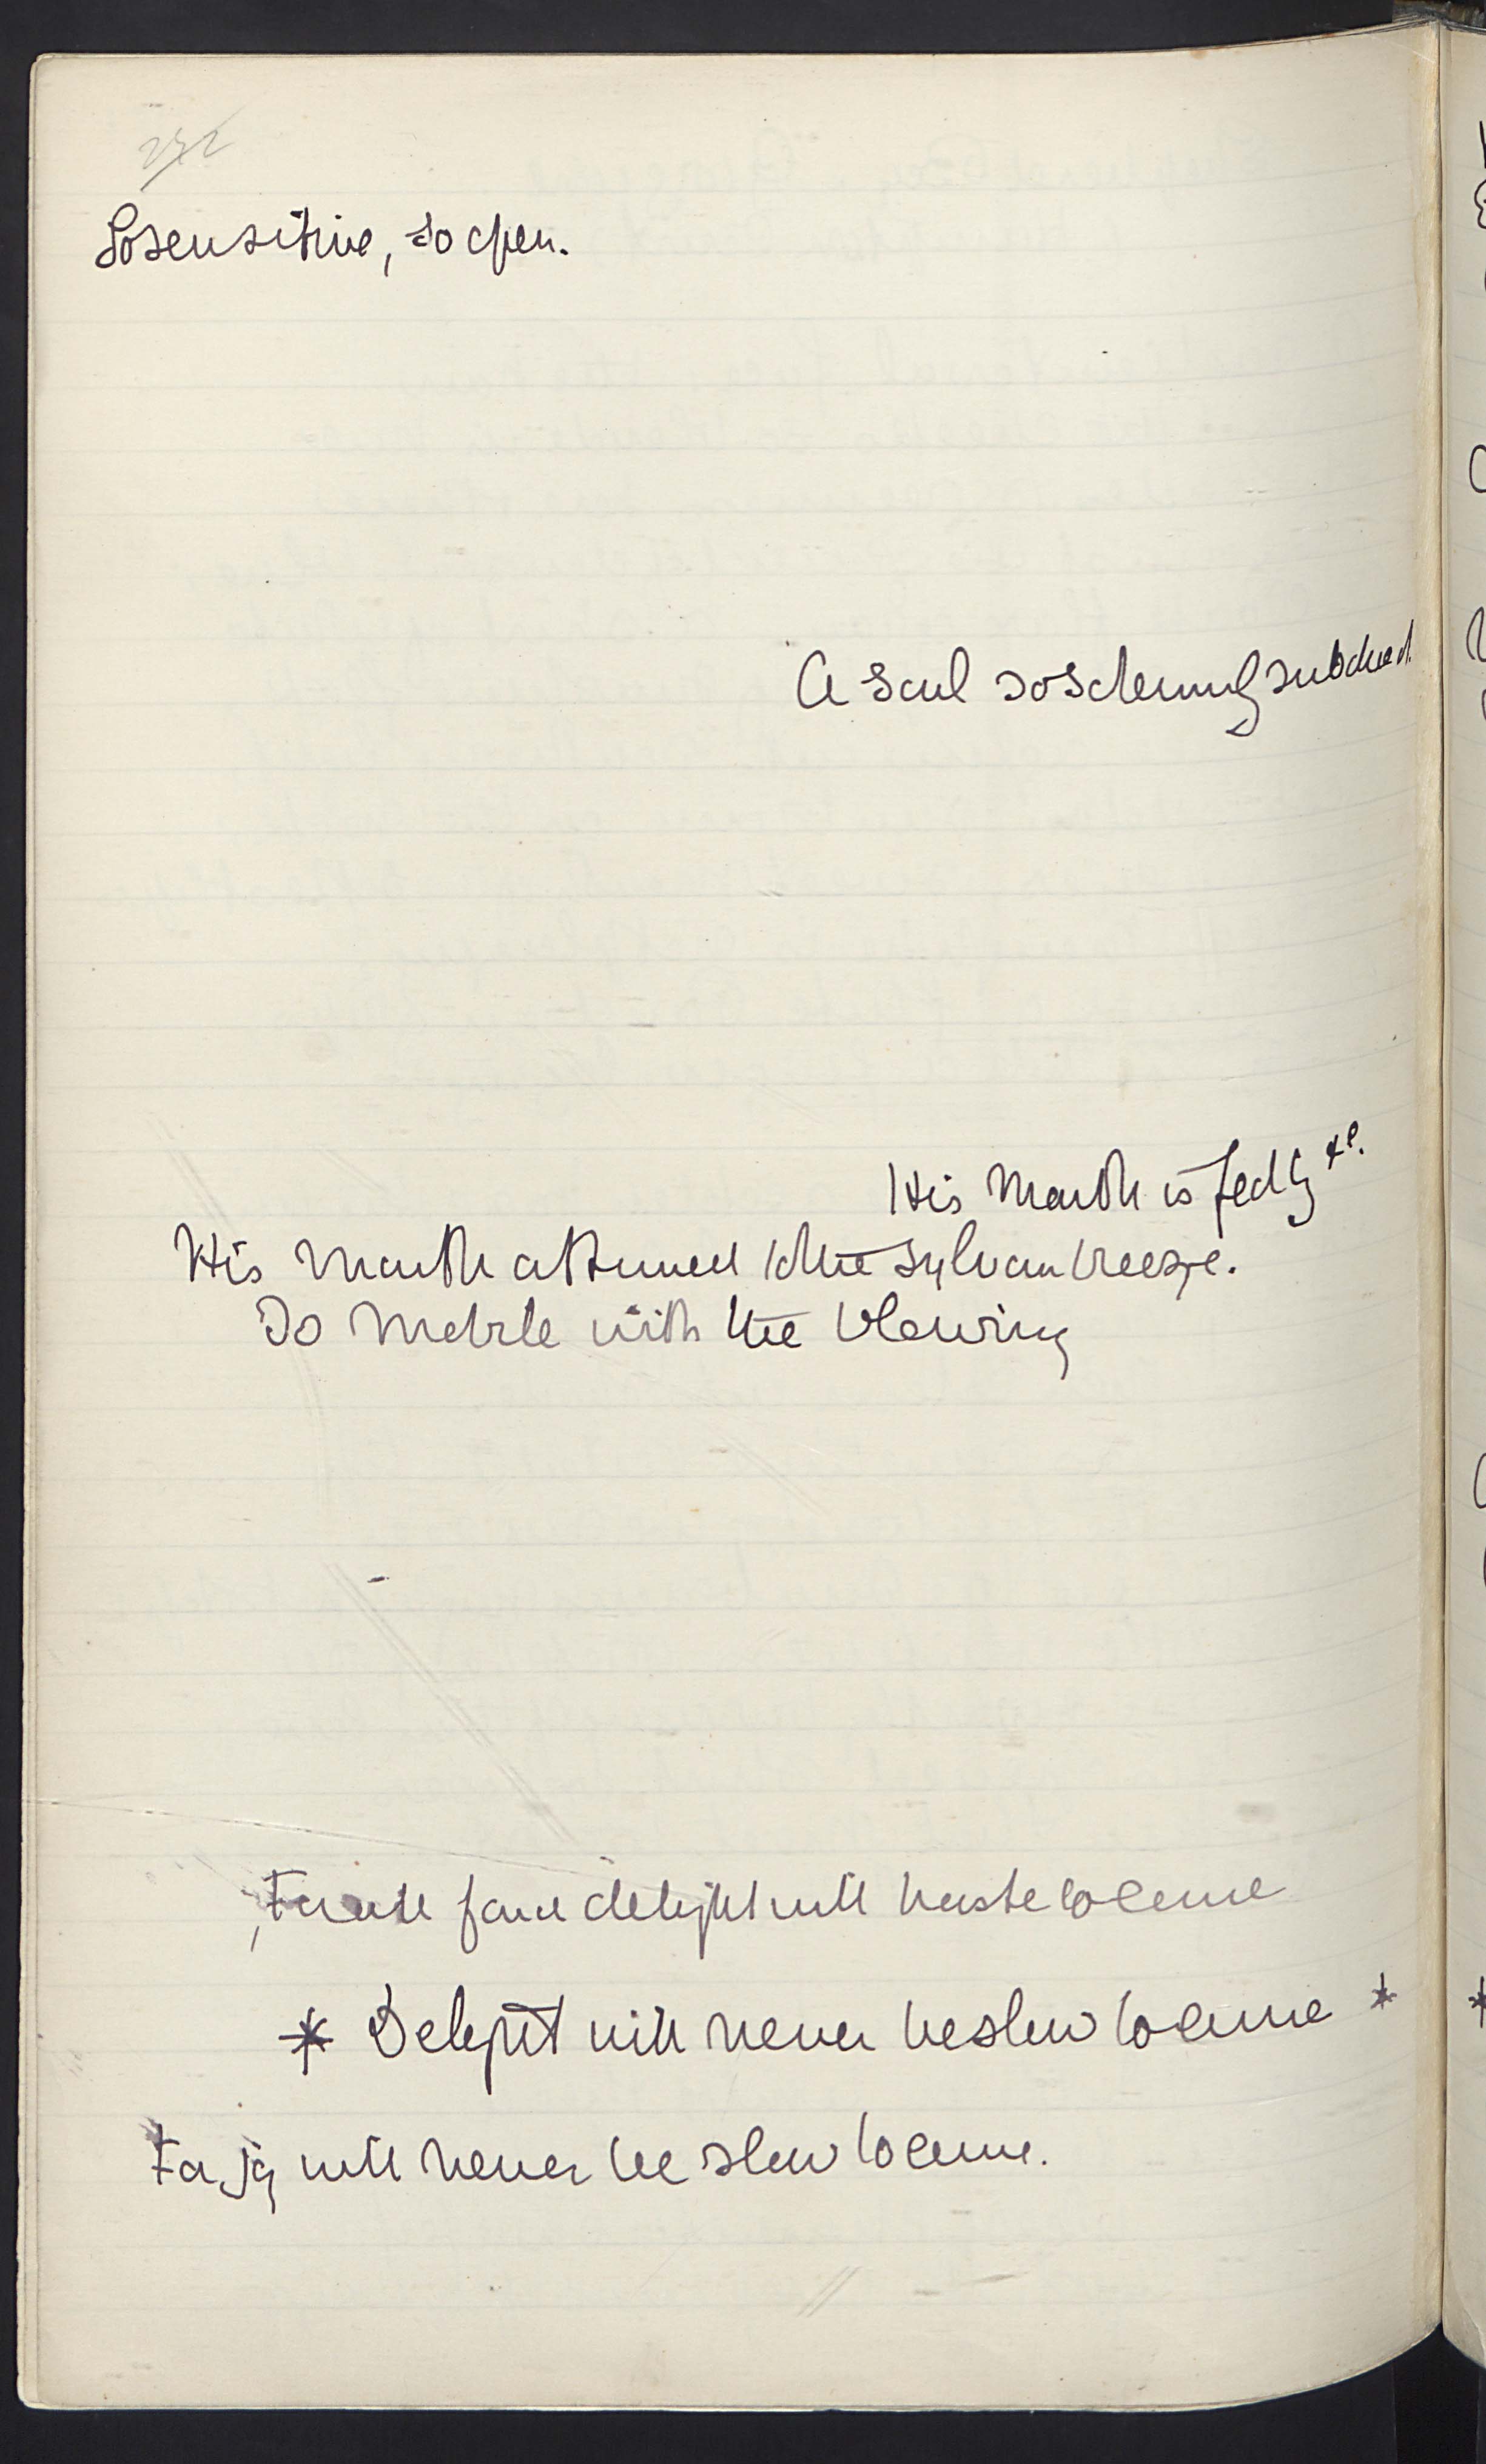 232
So sensitive, so open.
A soul so solemnly subdued.
His Mouth is fed by &c.
His Mouth attuned to the sylvan breeze.
So Mobile with the blowing
For all fond delight will haste to come
* Delight will never be slow to come *
For joy will never be slow to come.